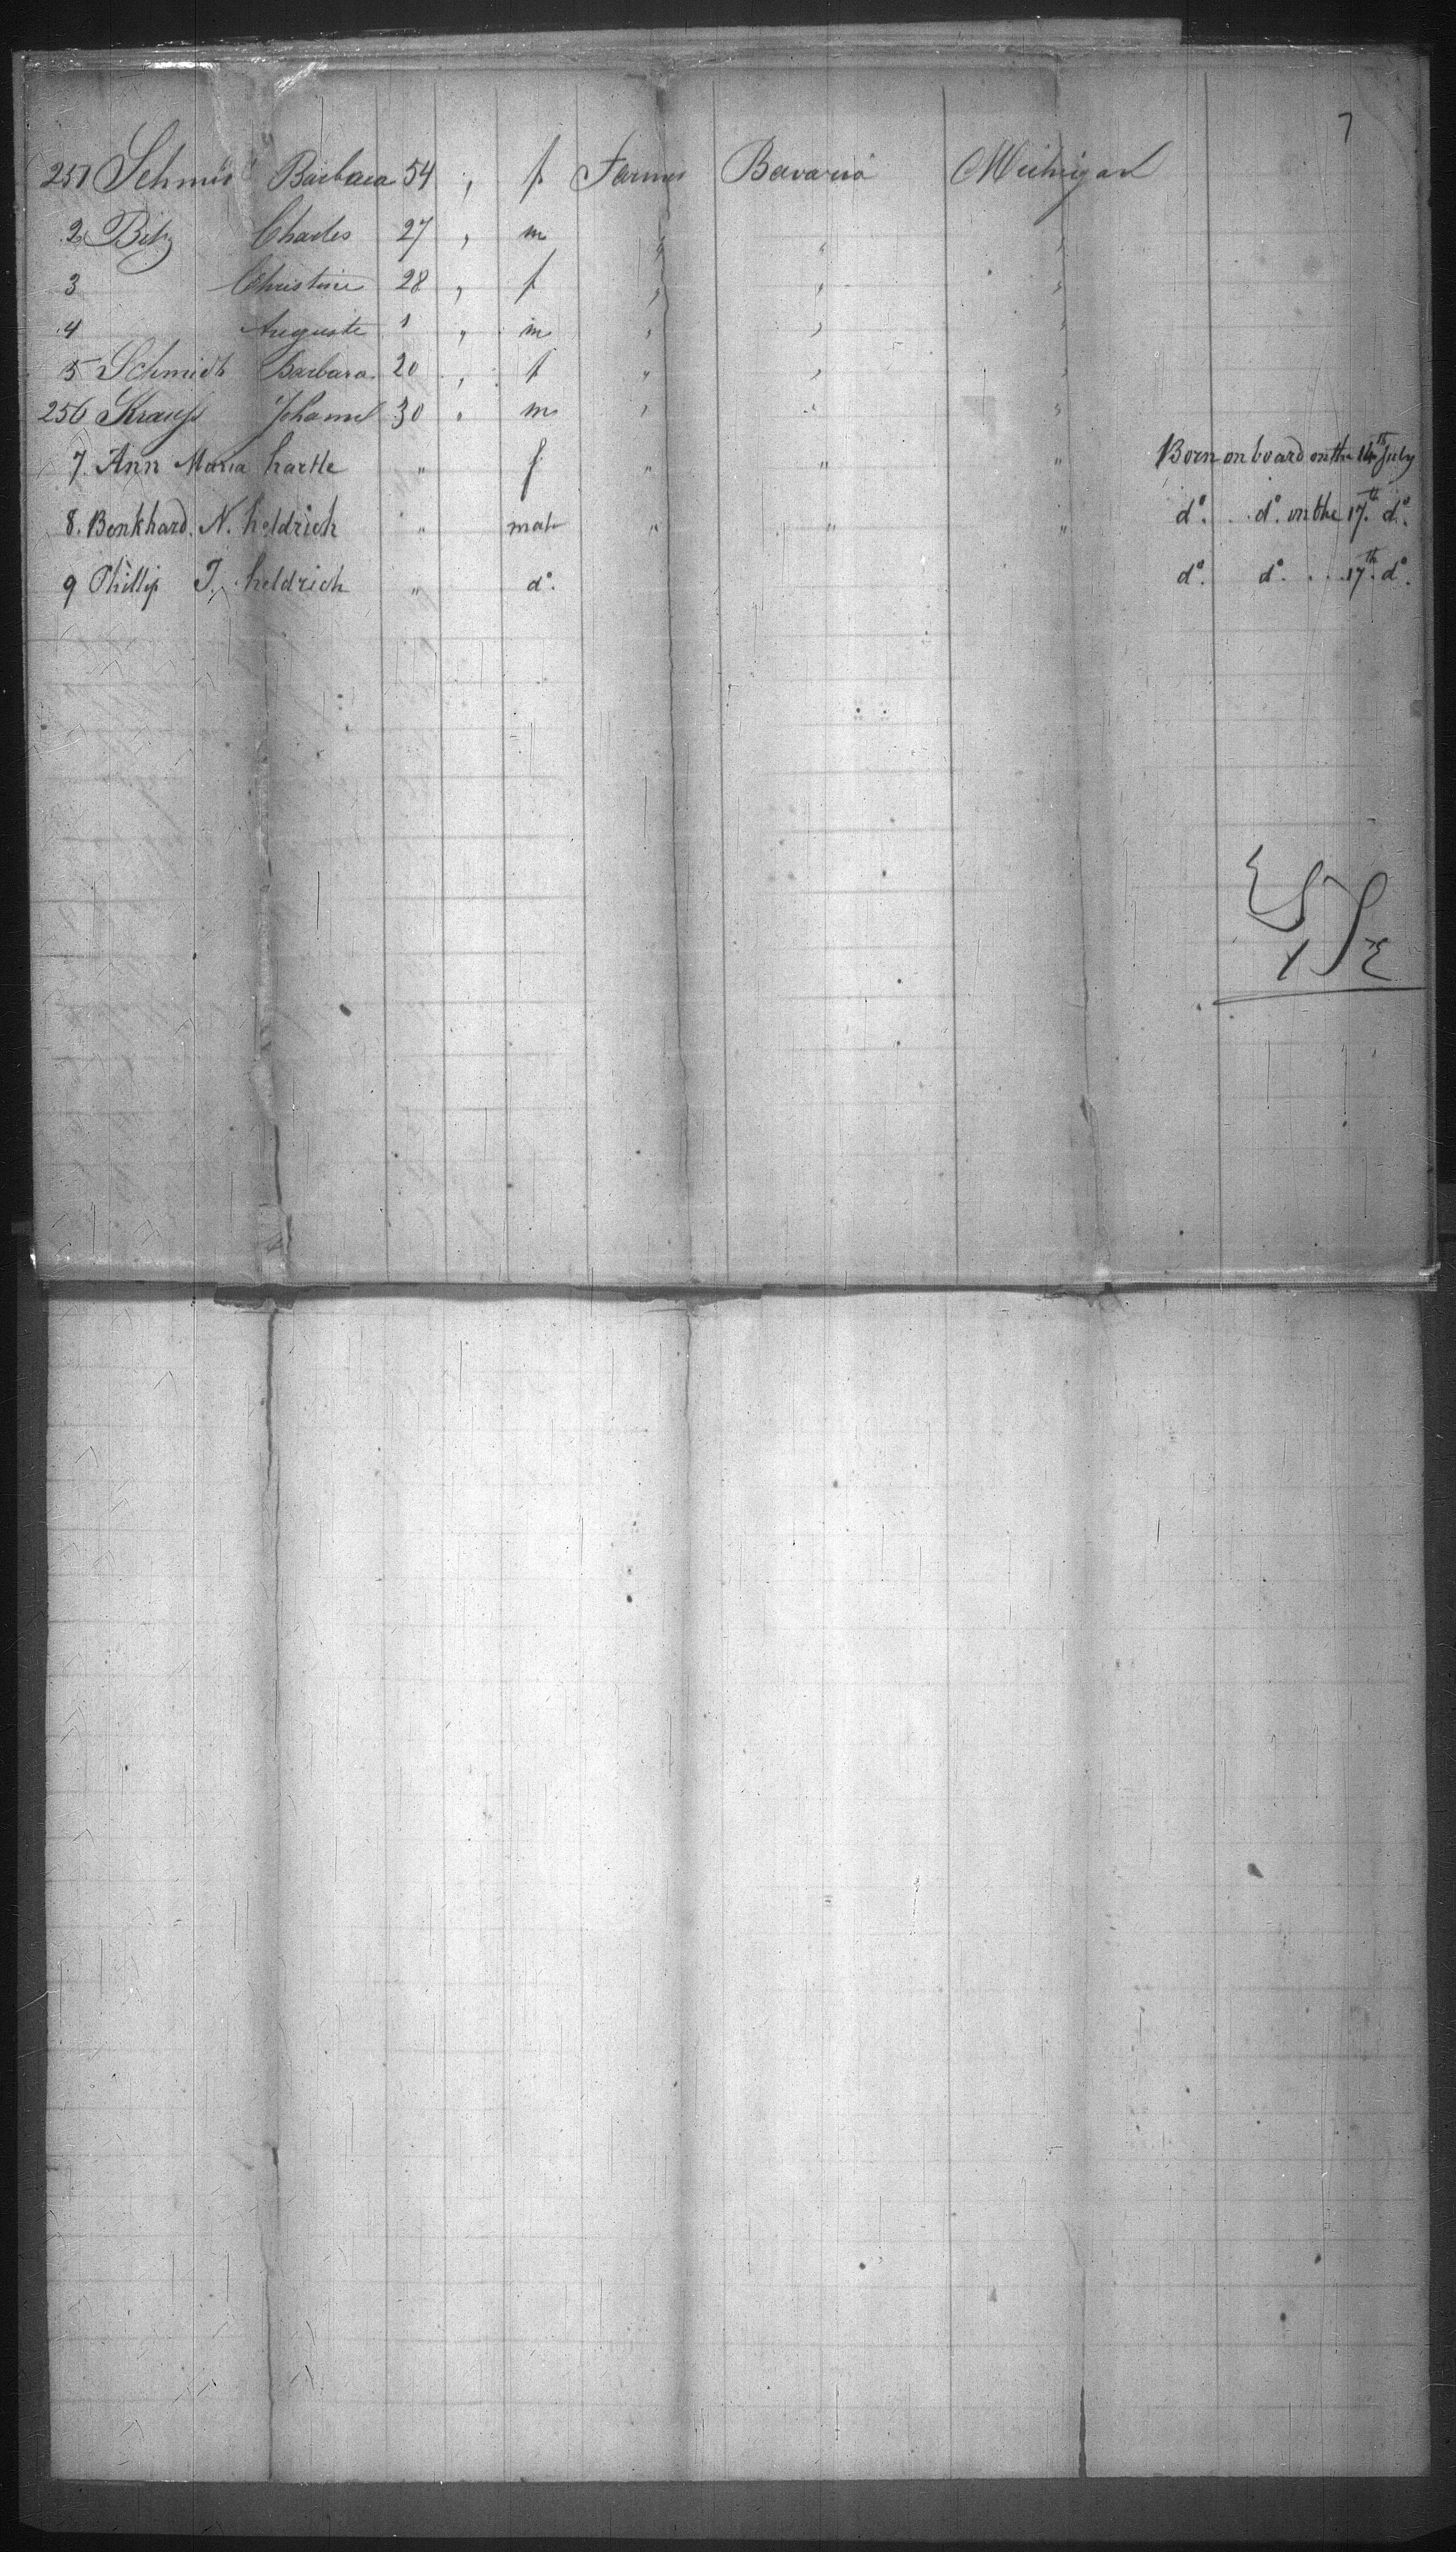 7
251 Schmid Barbara 54 , f Farmer Bavaria Michigan
2 Bitz Charles 27 , m , , ,
3 Christine 28 , f , , ,
4 Auguste 1 , m , , ,
5 Schmidt Barbara 20 , f " , ,
256 Krauß Johann 30 " m , " "
7. Ann Maria hartle " f " " " Born on board on the 14th July
8. Bonkhard. N. heldrich " male " " " do. do. on the 17th do.
9 Phillip J. heldrich " do. do. do. . . 17th. do.